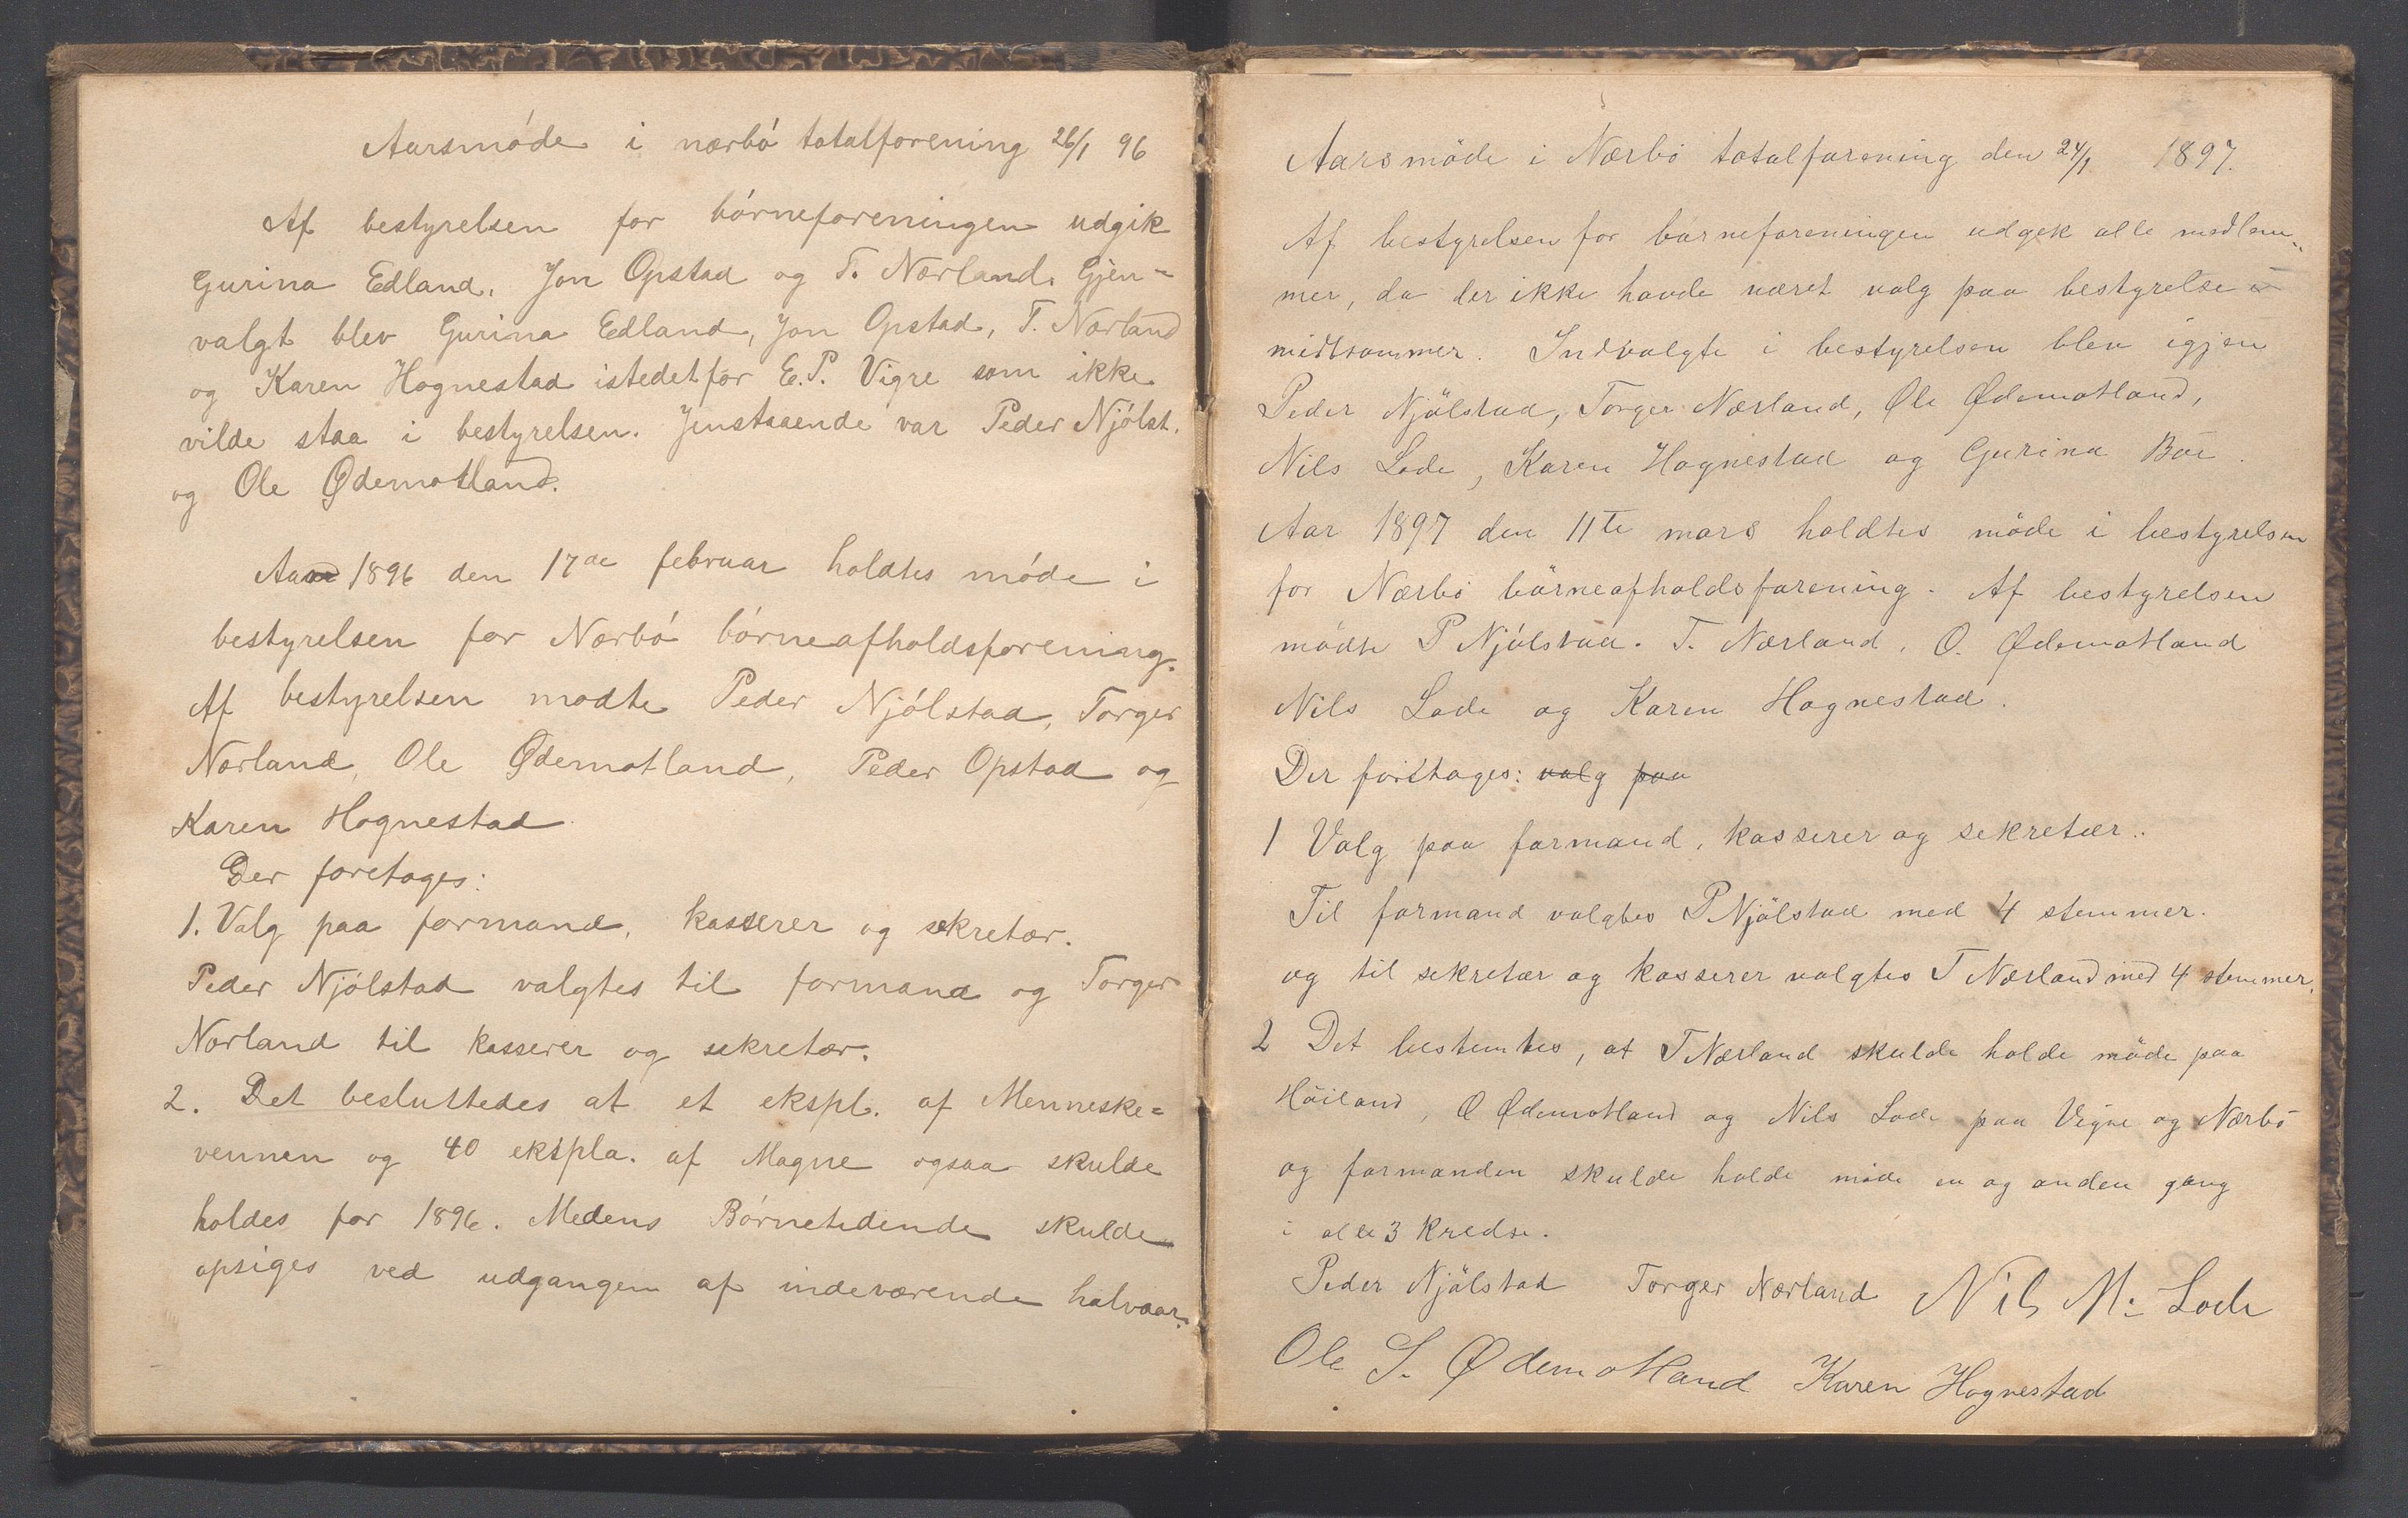 Aarsmóde i nærbó totalforening 26/1 96
Af bestyrelsen for bórneforeningen udgik
Gurina Edland, Jon Opstad og T. Nærland. Gjen-
valgt blev Gurina Edland, Jon Opstad, T. Nærland
og Karen Hognestad istedetfor E. P. Vigre som ikke
vilde staa i bestyrelsen. Jenstaaende var Peder Njólst.
og Ole Ødemotland.
Aar 1896 den 17de februar holdtes móde i
bestyrelsen for Nærbó bórneafholdsforening.
Af bestyrelsen modte Peder Njólstad, Torger
Nærland, Ole Ødemotland, Peder Opstad og
Karen Hognestad.
Der foretoges:
1. Valg paa formand, kasserer og sekretær.
Peder Njólstad valgtes til formand og Torger
Nærland til kasserer og sekretær.
2. Det besluttedes at et ekspl. af Menneske=
vennen og 40 ekspla. af Magne ogsaa skulde
holdes for 1896. Medens Bórnetidende skulde
opsiges ved udgangen af indeværende halvaar.
Aarsmöde i Nærbö totalforening den 24/1 1897.
Af bestyrelsen for börneforeningen udgik alle medlem-
mer, da der ikke havde været valg paa bestyrelse i
midtsommer. Indvalgte i bestyrelsen blev igjen
Peder Njölstad, Torger Nærland, Ole Ødemotland,
Nils Lode, Karen Hognestad og Gurina Böe.
Aar 1897 den 11te mars holdtes möde i bestyrelsen
for Nærbö börneafholdsforening. Af bestyrelsen
mödte P Njölstad. T. Nærland, O. Ødemotland
Nils Lode og Karen Hognestad.
Der foretoges: valg paa
1 Valg paa formand, kasserer og sekretær.
Til formand valgtes P Njölstad med 4 stemmer.
og til sekretær og kasserer valgtes T Nærland med 4 stemmer.
2 Det bestemtes, at T Nærland skulde holde möde paa
Höiland, O Ødemotland og Nils Lode paa Vigre og Nærbö
og formanden skulde holde möde en og anden gang
i alle 3 kredse.
Peder Njölstad Torger Nærland Nils M. Lode
Ole S. Ødemotland Karen Hognestad